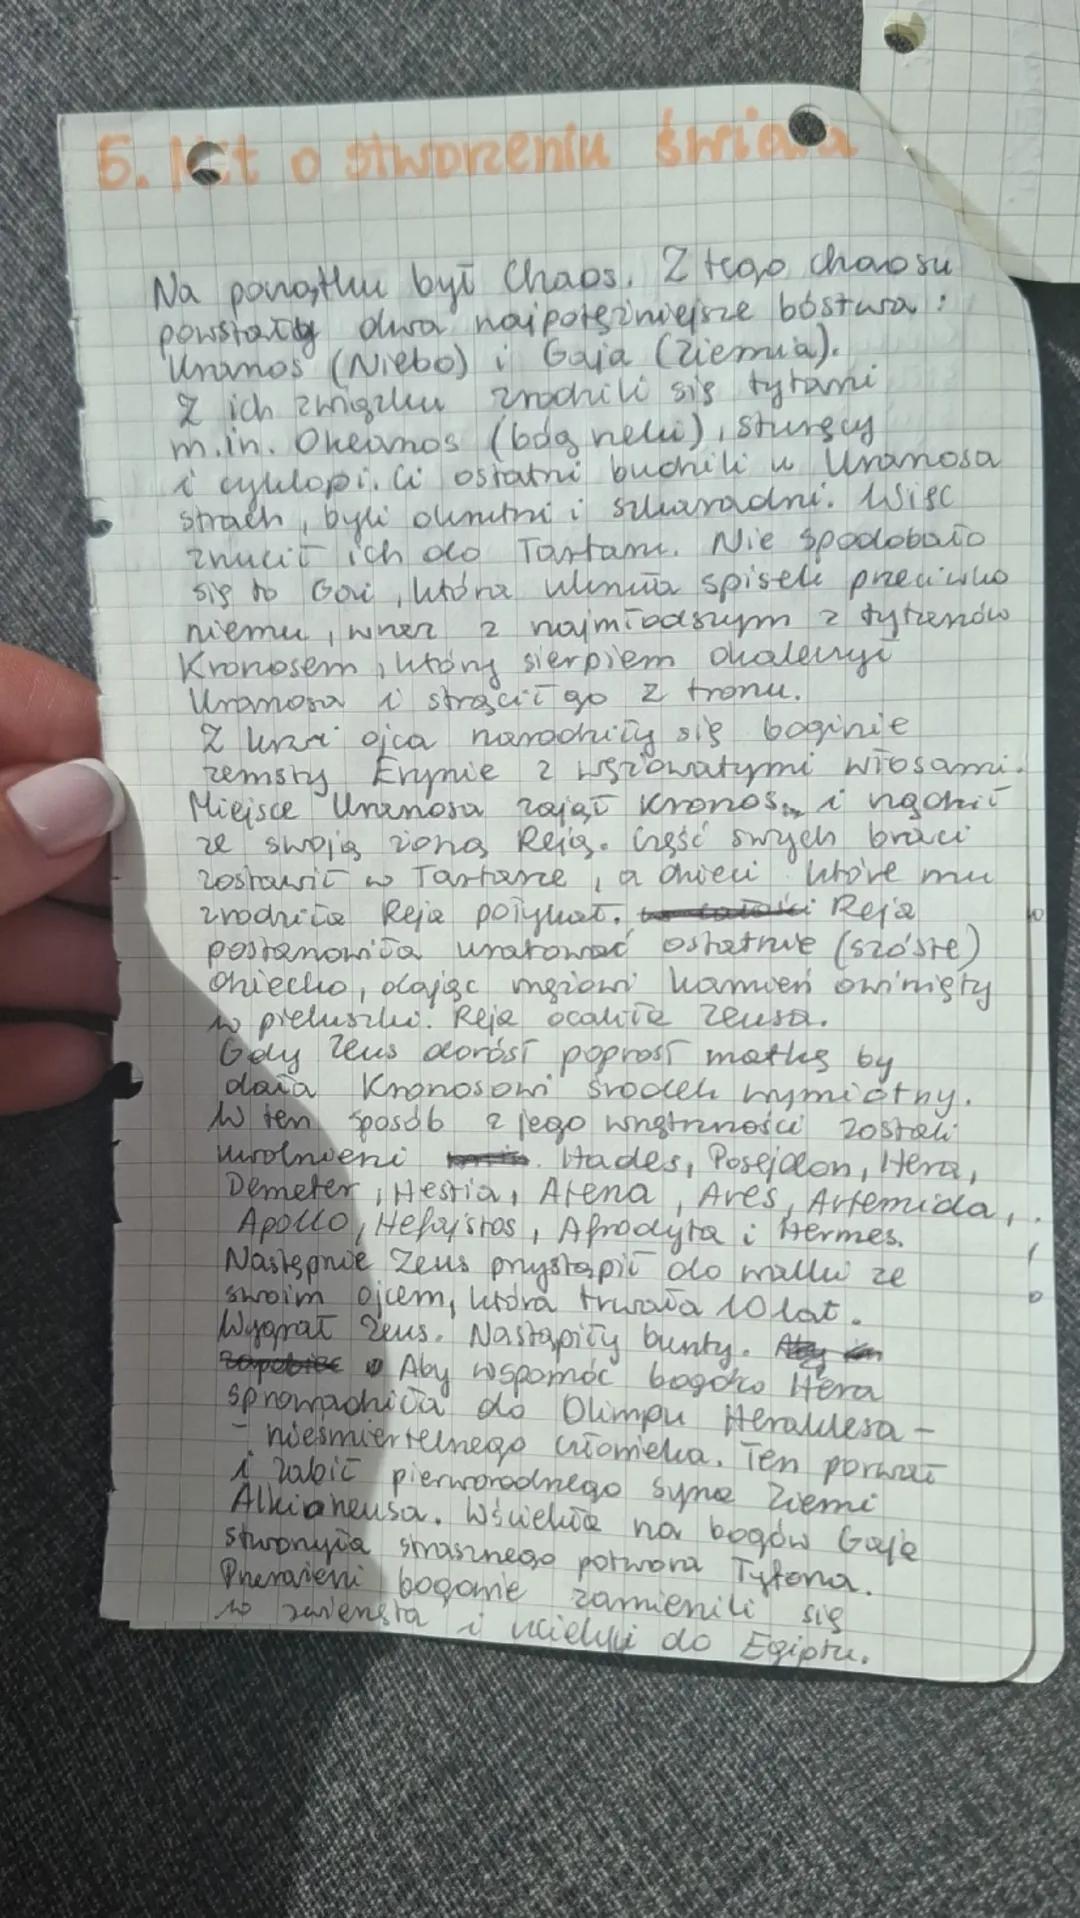 5. Mit o stworzeniu świata
Na początku był Chaos. Z tego chaosu
powstały dwa najpotężniejsze bóstwa:
Uranos (Niebo) i Gaja (Ziemia).
Z ich związku zrodzili się tytani
m.in. Okeanos (bóg rzeki), sturęcy
i cyklopi. Ci ostatni budzili u Uranosa
strach, byli okrutni i szkaradni. Więc
zrzucił ich do Tartaru. Nie spodobało
się to Gai, która uknuła spisek przeciwko
niemu, wraz z najmłodszym z tytanów
Kronosem, który sierpiem okaleczył
Uranosa i strącił go z tronu.
Z krwi ojca narodziły się boginie
zemsty Erynie z wężowatymi włosami.
Miejsce Uranosa zajął Kronos i rządził
ze swoją żoną Reją. Część swych braci
zostawił w Tartarze, a dzieci które mu
zrodziła Reja połykał. Reja
postanowiła uratować ostatnie (szóste)
dziecko, dając mężowi kamień owinięty
w pieluszki. Reja ocaliła Zeusa.
Gdy Zeus dorósł poprosł matkę by
dała Kronosowi środek wymiotny.
W ten sposób z jego wnętrzności zostali
uwolnieni Hades, Posejdon, Hera,
Demeter, Hestia, Atena, Ares, Artemida,
Apollo, Hefajstos, Afrodyta i Hermes.
Następnie Zeus przystąpił do walki ze
swoim ojcem, która trwała 10 lat.
Wygrał Zeus. Nastąpiły bunty. Aby
zapobiec Aby wspomóc bogów Hera
sprowadziła do Olimpu Heraklesa -
- nieśmiertelnego człowieka. Ten porwał
i zabił pierworodnego syna Ziemi
Alkioneusa. Wściekła na bogów Gaja
stworzyła strasznego potwora Tyfona.
Przerażeni bogowie zamienili się
w zwierzęta i uciekli do Egiptu.